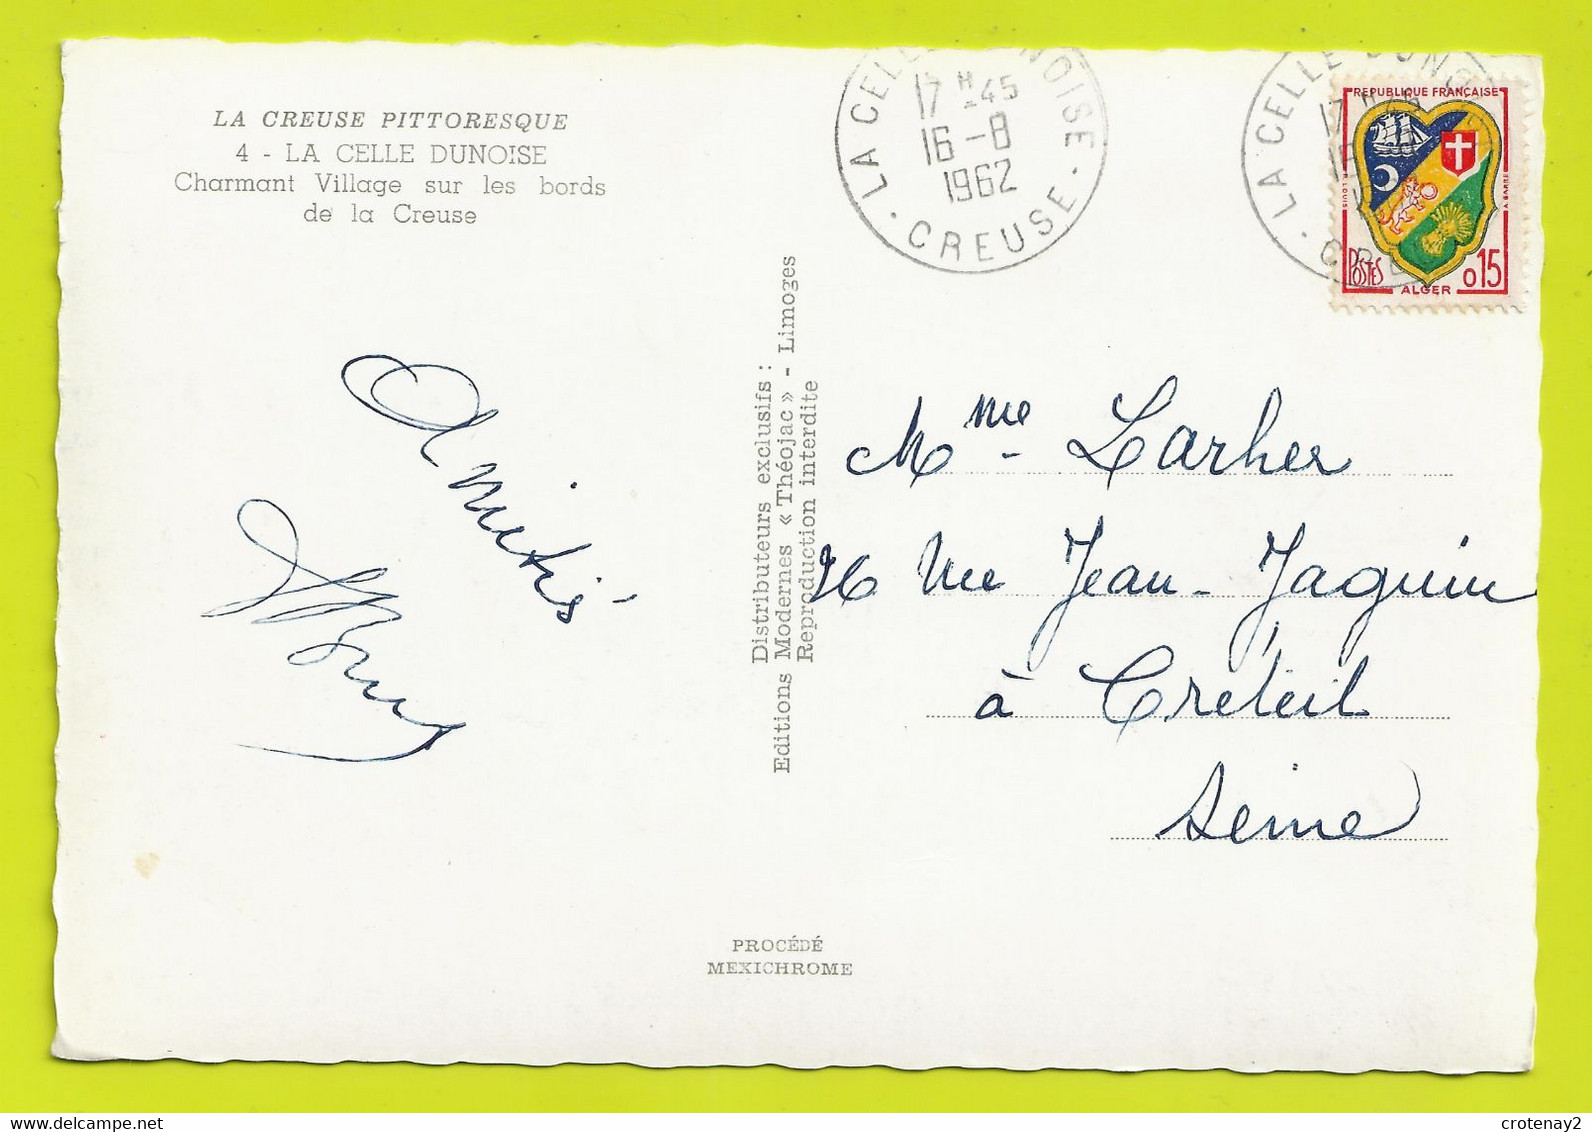 LA CREUSE PITTORESQUE
4 - LA CELLE DUNOISE
Charmant Village sur les bords
de la Creuse
LA CELLE DUNOISE
17 H -45
16 -8
1962
· CREUSE ·
LA CELLE DUNOISE
REPUBLIQUE FRANÇAISE
POSTES
ALGER
0,15
Amitiés
Distributeurs exclusifs :
Editions Modernes « Théojac » - Limoges
Reproduction interdite
Mme Larher
Rue Jean-Jaquin
à Créteil
Seine
PROCÉDÉ
MEXICHROME
crotenay2